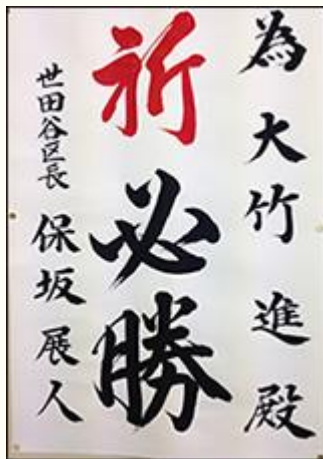 為大竹進殿
祈必勝
世田谷区長 保坂展人